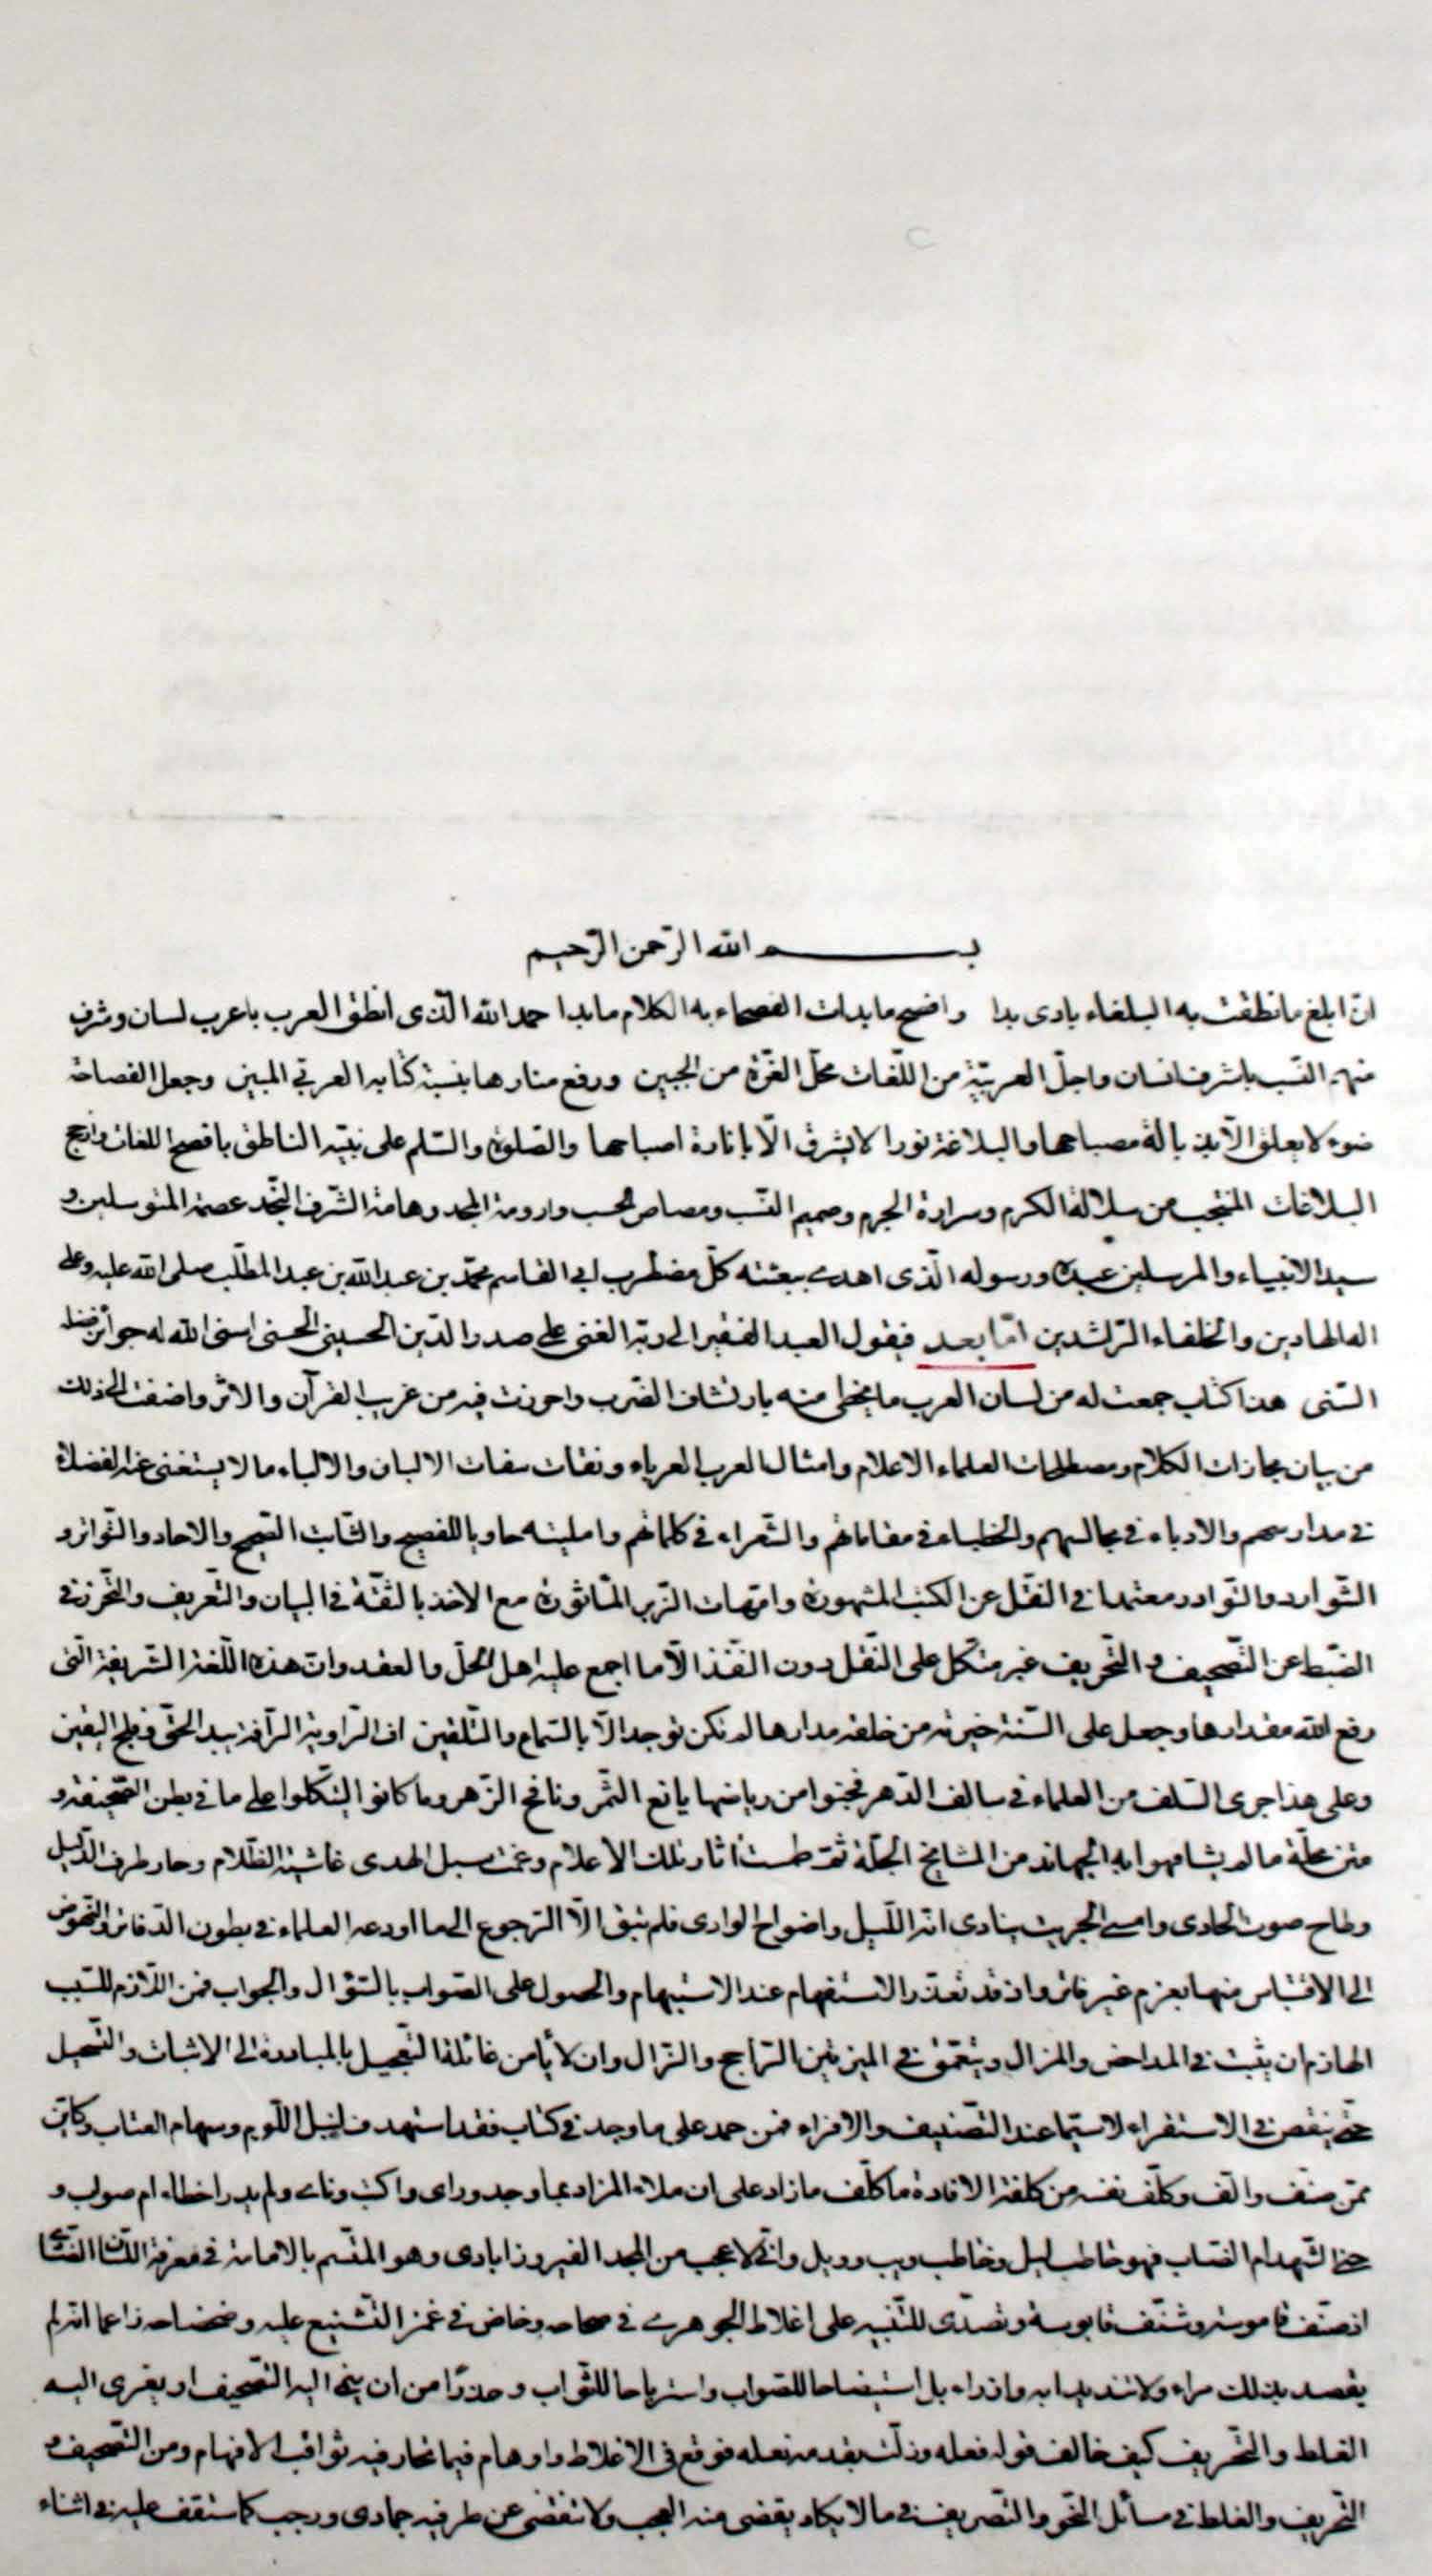 بسم الله الرحمن الرحيم
انّ ابلغ ما نطقت به البلغاء بادی بدا وافصح ما بدات الفصحاء به الكلام مابدا حمد الله الّذی انطق العرب باعرب لسان وشرف
منهم النّسب باشرف انسان واحلّ العربيّة من اللّغات محلّ الغرّة من الجبين ورفع منارها بنسبة كتابه العربی المبين وجعل الفصاحة
ضوء لا يعلق الّا بذبالة مصباحها والبلاغة نورا لا يشرق الّا بانارة اصباحها والصّلوة والسّلم علی نبيّه الناطق بافصح اللغات وابلج
البلاغات المنتجب من سلالة الكرم وسرارة الحرم وصميم النّسب ومصاص الحسب وارومة المجد وهامة الشّرف النّجد عصمة المتوسلين و
سيد الانبياء والمرسلين عبده ورسوله الّذی اهدی ببعثته كلّ مضطرب ابی القاسم محمّد بن عبد الله بن عبد المطّلب صلی الله عليه وعلی
اله الهادين والخلفاء الرّاشدين امّا بعد فيقول العبد الفقير الی ربّه الغنی علی صدر الدّين الحسينی الحسنی اسنی الله له جوائز فضله
السّنی هذا كتاب جمعت له من لسان العرب ما يحظی منه بارتشاف الضّرب واحرزت فيه من غريب القرآن والاثر واضفت الی ذلك
من بيان مجازات الكلام ومصطلحات العلماء الاعلام وامثال العرب العرباء ونفثات الالبان والالباء ما لا يستغنی عنه الفضلاء
فی مدارسهم والادباء فی مجالسهم والخطباء فی مقاماتهم والشّعراء فی كلماتهم وامليته حاويا للفصيح والثّابت الصّحيح والاحاد والتّواتر و
الشّوارد والنّوادر معتمدا فی النّقل عن الكتب المشهورة وامّهات الزّبر المأثورة مع الاخذ بالثقة فی البيان والتّعريف والتّحرّز فی
الضّبط عن التّصحيف والتّحريف غير متكل علی النّقل دون النّقد الّا ما اجمع عليه اهل الحلّ والعقد وانّ هذه اللّغة الشّريفة الّتی
رفع الله مقدارها وجعل علی السنة خيرته من خلقه مدارها لم تكن توجد الّا بالسّماع والتّلقين اذ الرّاوية الرّافة بيد الحقّ وفلج اليقين
وعلی هذا جری السّلف من العلماء فی سالف الدّهر فجنوا من رياضها يانع الثّمر ونافح الزّهر وما كانوا ليتّكلوا علی ما فی بطن الصّحيفة و
متن مجلّة ما لم يشافهوا به الجهابذ من المشايخ الجلّة ثمّ طمست اثار تلك الاعلام وعمّت سبل الهدی غاشية الظّلام وحار طرف الدّليل
وطاح صوت الحادی وامسی الخريت ينادی انه اللّيل واضواج الوادی فلم يبق الّا الرّجوع الی ما اودعه العلماء فی بطون الدّفاتر والنّهوض
الی الاقتباس منها بعزم غير فاتر واذ قد تعذّر الاستفهام عند الاستبهام والحصول علی الصّواب بالسّؤال والجواب فمن اللّازم للّبيب
الحازم ان يتثبت فی المداحض والمزال ويتعمّق فی الميز بين الرّاجح والزّال وان لا يأمن غائلة التّعجيل بالمبادرة الی الاثبات والتّسجيل
حتّی ينقص فی الاستقراء لا سيّما عند التّصنيف والاقراء فمن جمد علی ما وجد فی كتاب فقد استهدف لنبل اللّوم وسهام العتاب وكايّن
ممّن صنّف والّف وكلّف نفسه من كلفة الافادة ما كلّف مازاد علی ان ملاء المزاد بما وجد ورای واكتب وناء ولم يدر اخطاء ام صواب و
جنی الشّهد ام الصّاب فهو حاطب ليل وخاطب ويب وويل وانّی لاعجب من المجد الفيروزابادی وهو المتّسم بالامامة فی معرفة اللّسان الضّادی
اذ صنّف قاموسه وشنّف قابوسه وتصدّی للتّنبيه علی اغلاط الجوهری فی صحاحه وخاض فی غمز التّشنيع عليه وضحضاحه زاعما انّه لم
يقصد بذلك مراء ولا تنديدا به وازراء بل استيضاحا للصّواب واسترباحا للثّواب وحذرا من ان ينمی اليه التّصحيف او يعزی اليه
الغلط والتّحريف كيف خالف قوله فعله وزلّت بقدمه نعله فوقع فی الاغلاط واوهام فيما تحار فيه ثواقب الافهام ومن التّصحيف و
التّحريف والغلط فی مسائل النّحو والتّصريف فی ما لا يكاد يقضی منه العجب ولا تنقضی عن طرفيه جمادی ورجب كما ستقف عليه فی اثناء